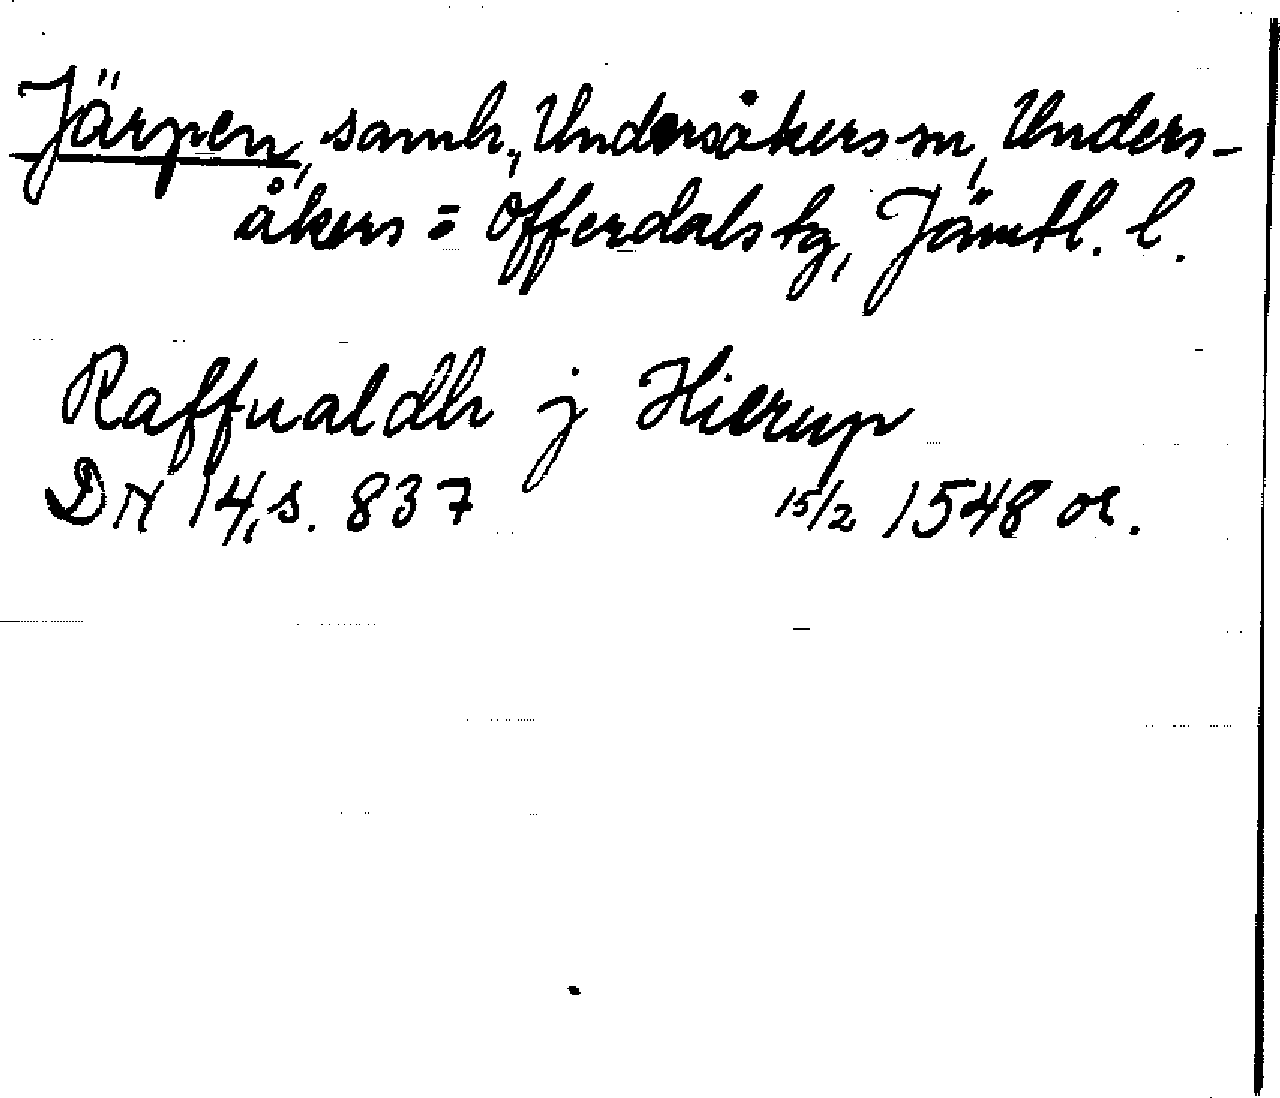 Järpen, samh., Undersåkers sn, Unders-
åkers = Offerdals tg, Jämtl. l.
Raffualdh j Hierup
DN 14, s. 837 15/2 1548 or.